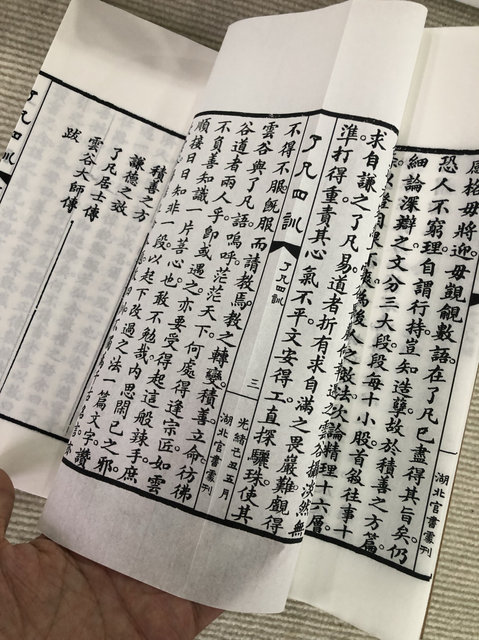 毋將迎毋覬覦數語在了凡已盡得其旨矣仍
恐人不窮理自謂行持豈知造孽故於積善之方篇
細論深辯之文分三大段段每十小股首敘往事十
做法次論精理十六層
湖北官書彙刊
求自謙之了凡易道者折有求自滿之畏嚴難觀得
準打得重責其心氣不平文安得工直探驪珠使其
了凡四訓
了凡四訓
三
光緒己丑五月
湖北官書彙刊
不得不服旣服而請教焉教之轉變積善立命彷彿
雲谷與了凡語嗚呼茫茫天下何處得逢宗匠如雲
谷道者兩人乎卽或遇之亦要受得起這般辣手庶
不負善知識一片苦心也敢不勉哉內思閑已之邪
順接日日知非一段以起下改過之法一篇文字讚
積善之方
謙德之效
了凡居士傳
雲谷大師傳
跋
了凡四訓